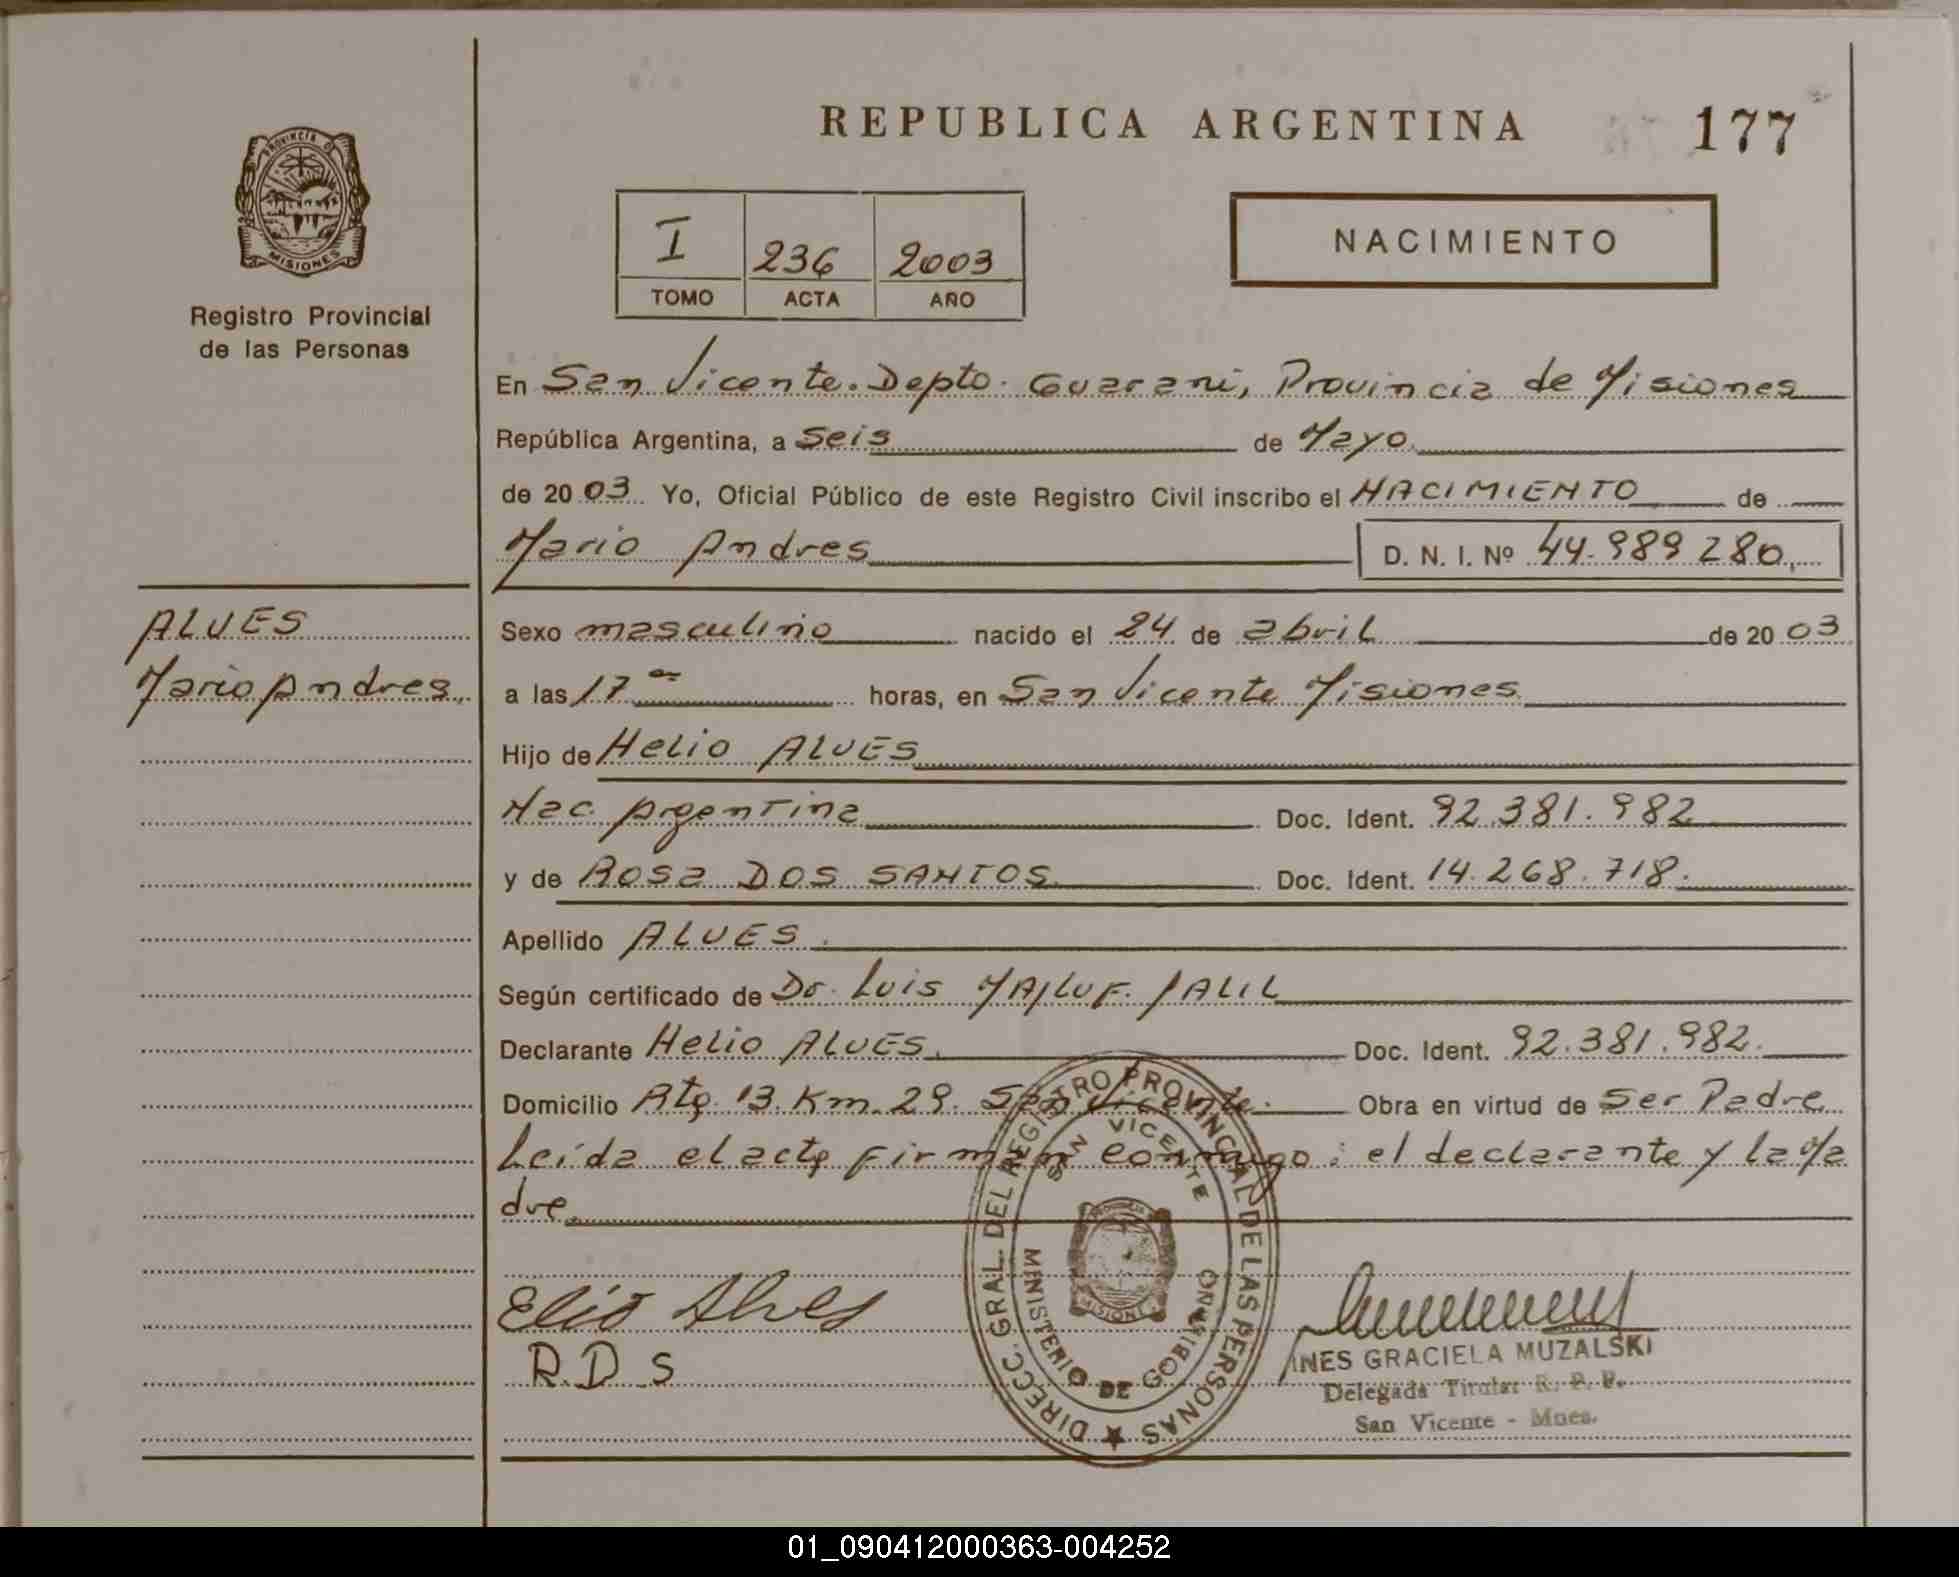 REPUBLICA ARGENTINA 177
PROVINCIA D
MISIONES
Registro Provincial
de las Personas
I 236 2003
TOMO ACTA AÑO
NACIMIENTO
En San Vicente. Depto. Guarani, Provincia de Misiones
República Argentina, a Seis de Mayo
de 2003 Yo, Oficial Público de este Registro Civil inscribo el NACIMIENTO de
Mario Andres D. N. I. Nº 44.989280,
ALVES
Mario Andres
Sexo masculino nacido el 24 de abril de 2003
a las 17 horas, en San Vicente Misiones
Hijo de Helio ALVES
Nac. Argentina Doc. Ident. 92.381.982
y de ROSa DOS SANTOS Doc. Ident. 14.268.718.
Apellido ALVES.
Según certificado de Dr. Luis JALIL
Declarante Helio ALVES. Doc. Ident. 92.381.982.
Domicilio Rta. 13. Km. 29. San Vicente. Obra en virtud de Ser Padre
Leída el acta firman conmigo: el declarante y la Ma
dre
Elio Alves
R.D S
DIRECC. GRAL. DEL REGISTRO PROVINCIAL DE LAS PERSONAS
SAN VICENTE
MINISTERIO DE GOBIERNO
MISIONES
INES GRACIELA MUZALSKI
Delegada Titular R. P. P.
San Vicente - Mnes.
01_090412000363-004252